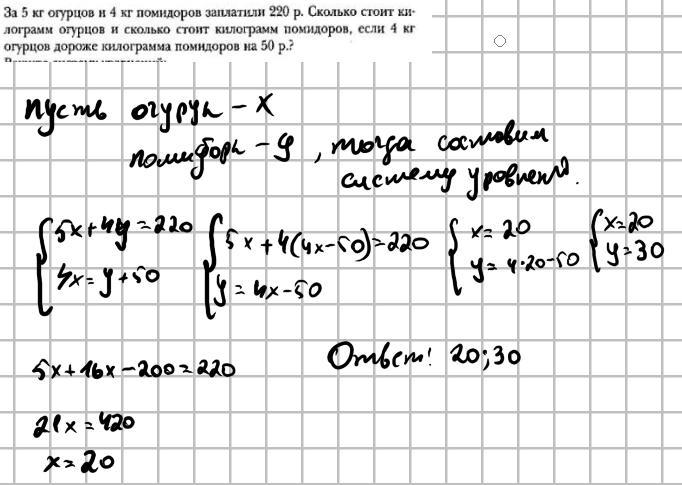 За 5 кг огурцов и 4 кг помидоров заплатили 220 р. Сколько стоит ки-
лограмм огурцов и сколько стоит килограмм помидоров, если 4 кг
огурцов дороже килограмма помидоров на 50 р.?
пусть огурцы - x
помидоры - y, тогда составим
систему уровнений.
5x+4y=220
4x=y+50
5x+4(4x-50)=220
y=4x-50
x=20
y=4·20-50
x=20
y=30
5x+16x-200=220
21x=420
x=20
Ответ: 20;30